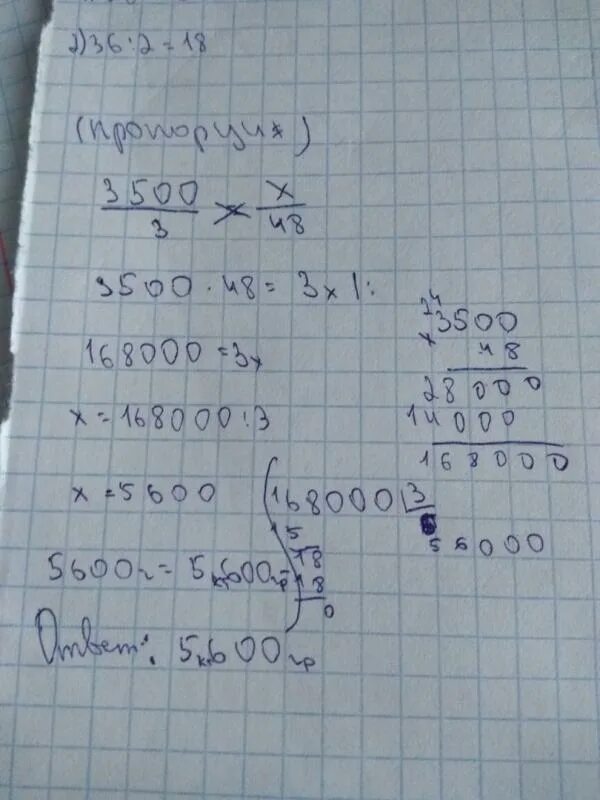 2) 36 : 2 = 18
(пропорция)
3500 x
3 48
3500 · 48 = 3x |:
168000 = 3x
x = 168000 : 3
x = 5600
5600г = 5кг600гр
Ответ: 5кг600гр
24
3500
×
48
28000
14000
168000
168000 3
15 56000
18
18
0